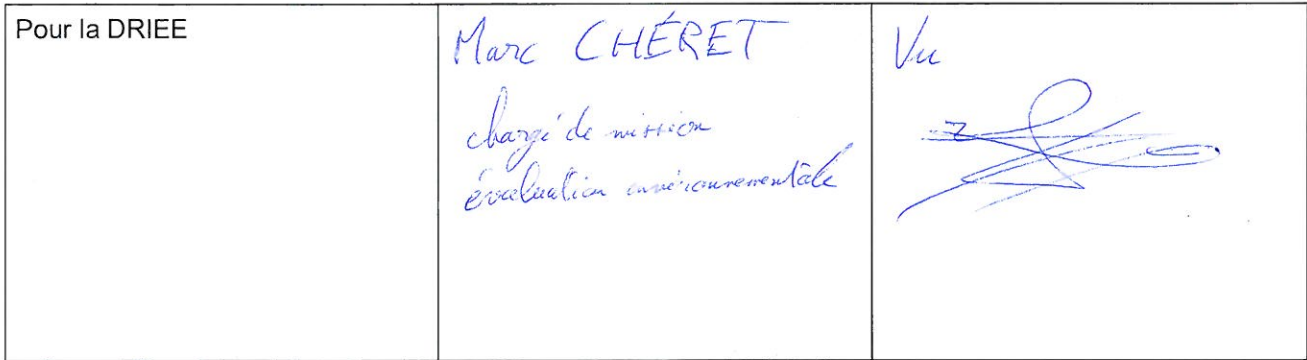 Pour la DRIEE
Marc CHÉRET
chargé de mission
évaluation environnementale
Vu